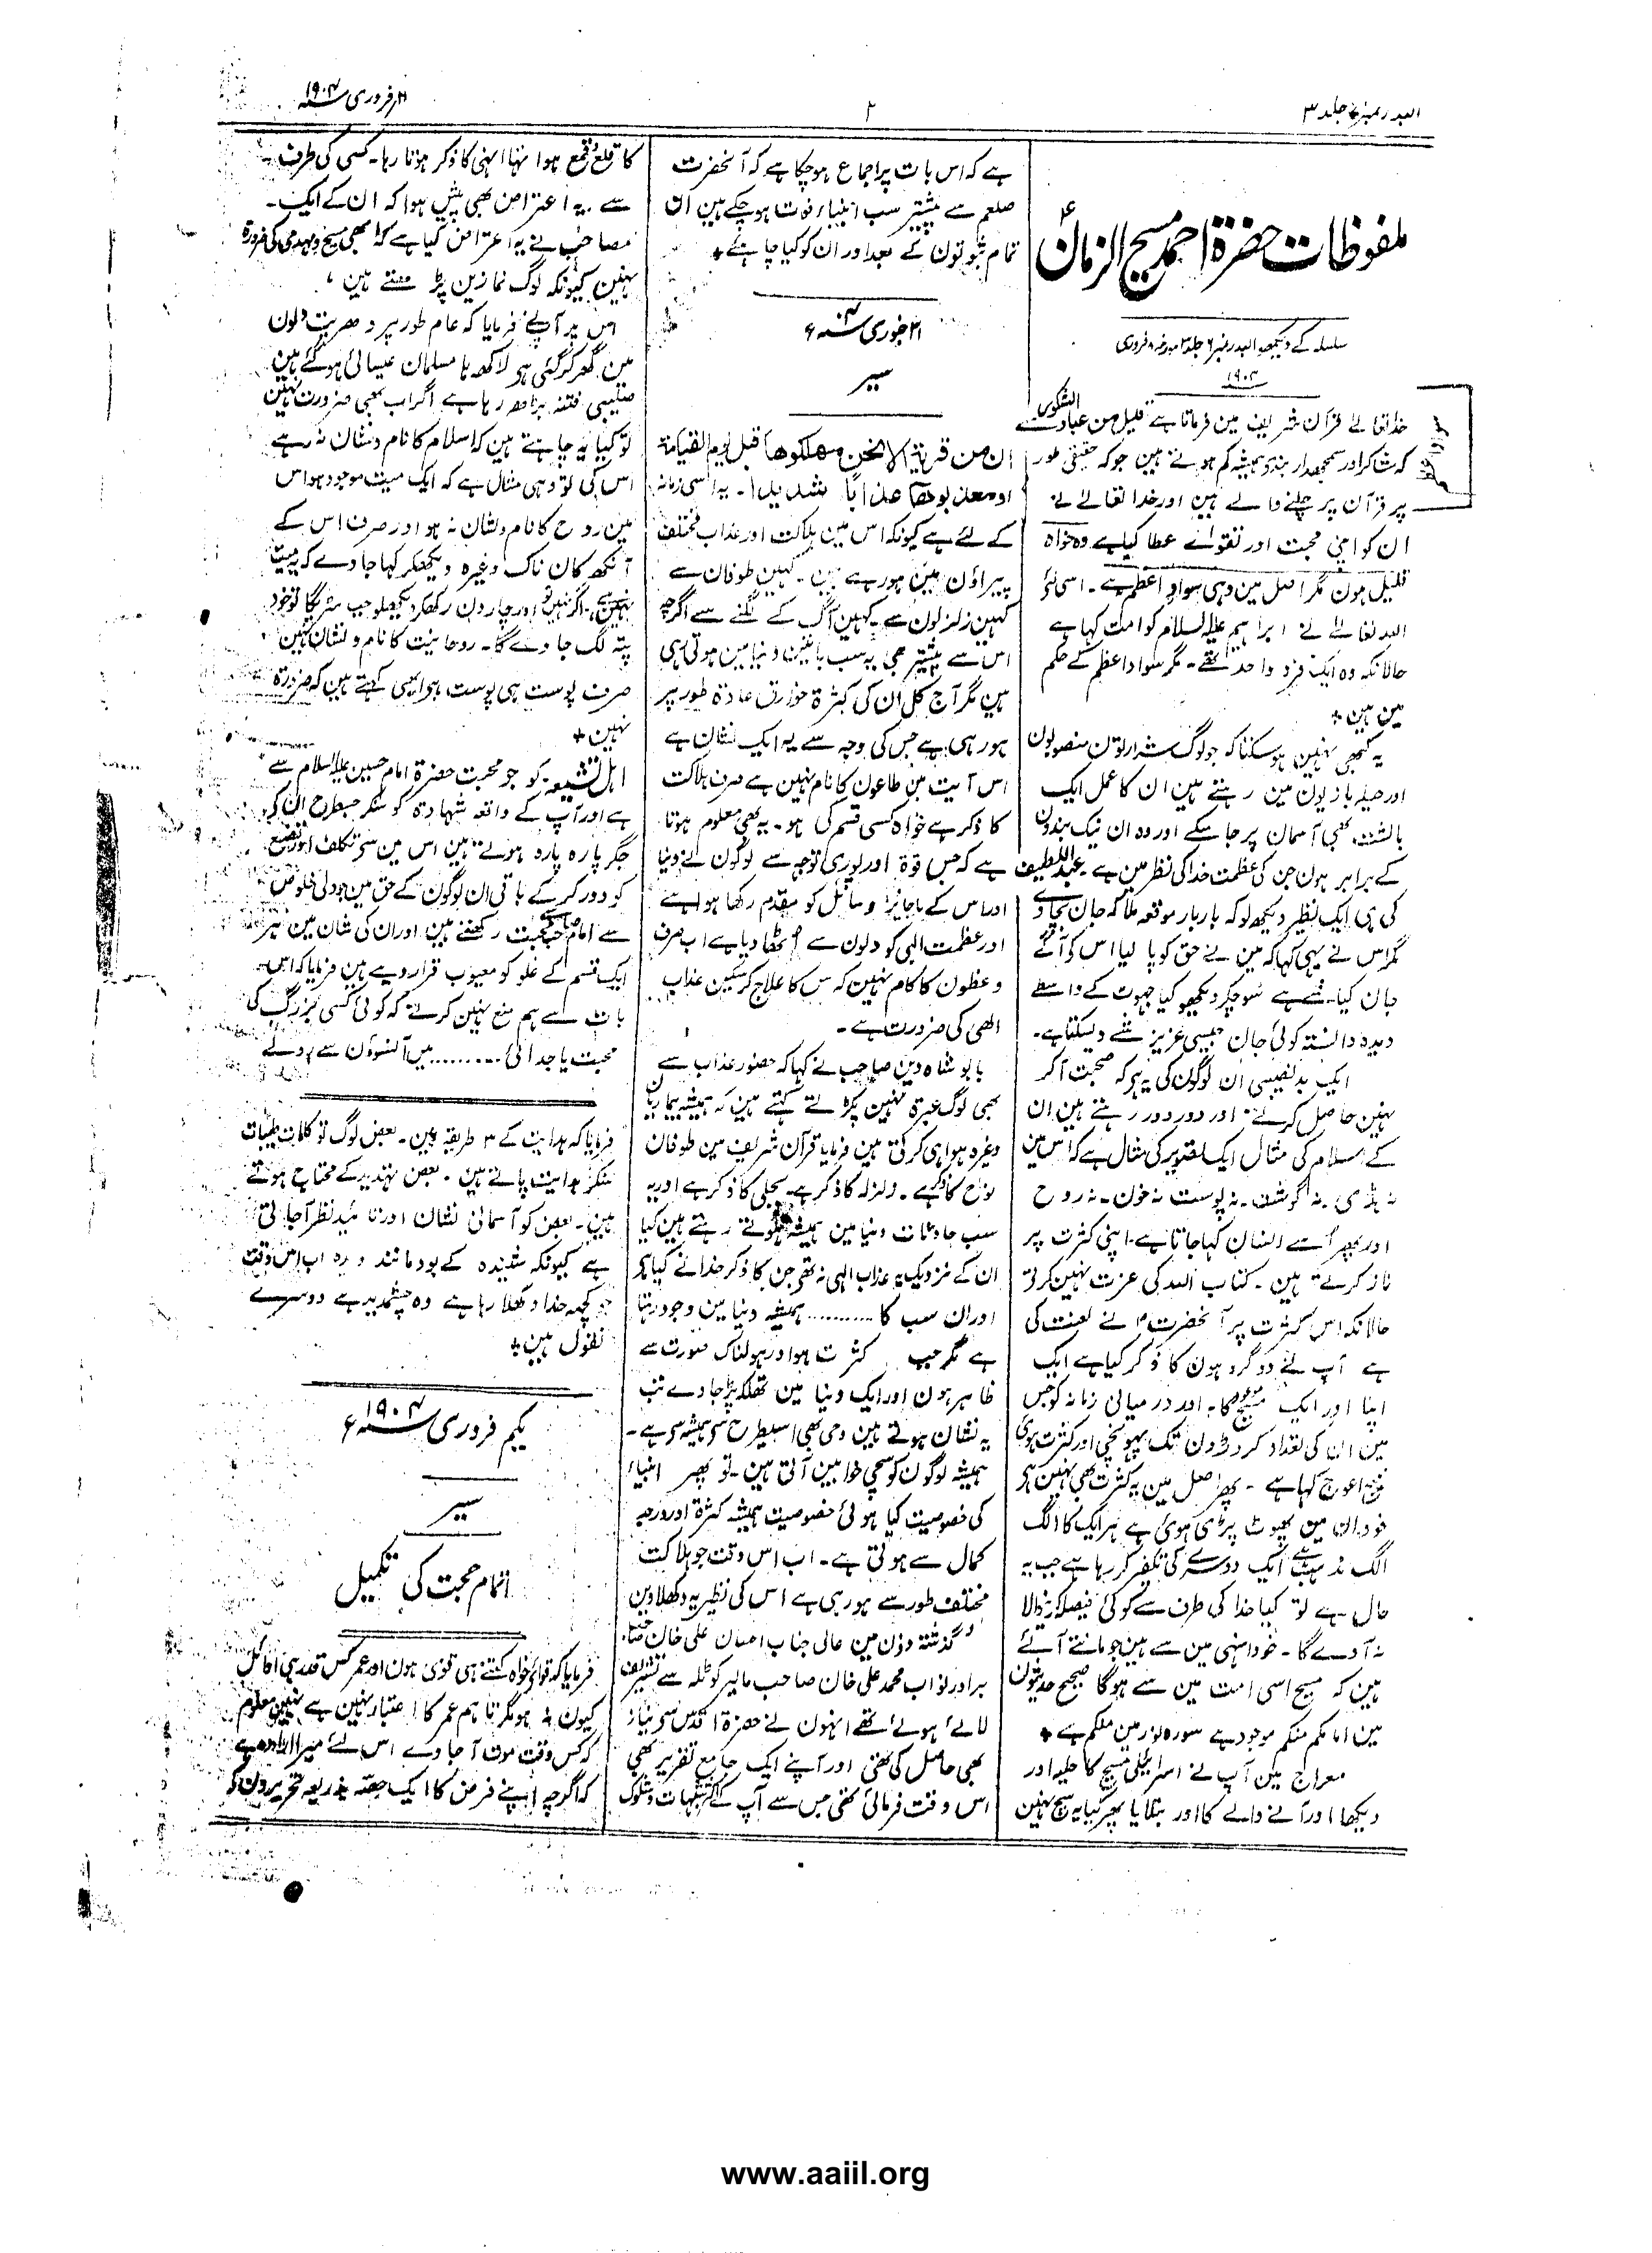 البدر نمبر ۷ جلد ۳
۲
۱۹۰۴
ملفوظات حضرۃ احمد مسیح الزمانؑ
سلسلہ کے دیکھو البدر نمبر ۶ جلد ۳ مورخہ ۸ فروری
۱۹۰۴
خدا تعالےٰ قرآن شریف مین فرماتا ہے قلیل من عبادی الشکور
کہ شاکر اور سمجھدار بندے ہمیشہ کم ہوتے ہین جو کہ حقیقی طور
پر قرآن پر چلنے والے ہین اور خدا تعالےٰ نے
ان کو اپنی محبت اور تقوےٰ عطا کیا ہے وہ خواہ
قلیل ہون مگر اصل مین وہی سواد اعظم ہے۔ اسی لئے
اللہ تعالےٰ نے ابراہیم علیہ السلام کو امت کہا ہے
حالانکہ وہ ایک فرد واحد تھے۔ مگر سواد اعظم کے حکم
مین ہین +
یہ کبھی نہین ہو سکتا کہ جو لوگ شرارتون منصوبون
اور حیلہ بازیون مین رہتے ہین ان کا عمل ایک
بالشت بھی آسمان پر جا سکے اور وہ ان نیک بندون
کے برابر ہون جن کی عظمت خدا کی نظر مین ہے۔ عبد اللطیف
کی ہی ایک نظیر دیکھ لو کہ بار بار موقعہ ملا کہ جان بچاوے
مگر اس نے یہی کہا کہ مین نے حق کو پا لیا اس کے آگے
جان کیا شے ہے سوچکر دیکھو کیا جھوٹ کے واسطے
دیدہ دانستہ کوئی جان جیسی عزیز شے دے سکتا ہے۔
ایک بدنصیبی ان لوگون کی یہ ہے کہ صحبت آکر
نہین حاصل کرتے اور دور دور رہتے ہین ان
کے اسلام کی مثال ایک تصویر کی مثال ہے کہ اس مین
نہ ہڈی۔ نہ گوشت۔ نہ پوست نہ خون۔ نہ روح
اور پھر اسے انسان کہا جاتا ہے۔ اپنی کثرت پر
ناز کرتے ہین۔ کتاب اللہ کی عزت نہین کرتے
حالانکہ اس کثرت پر آنحضرت ﷺ نے لعنت کی
ہے آپ نے دو گروہون کا ذکر کیا ہے ایک
اپنا اور ایک مسیح موعود کا۔ اور درمیانی زمانہ کو جس
مین ان کی تعداد کروڑون تک پہونچی اور کثرت ہوئی
فیج اعوج کہا ہے۔ پھر اصل مین یہ کثرت بھی نہین ہے
خود ان مین پھوٹ پڑی ہوئی ہے ہر ایک کا الگ
الگ مذہب ہے ایک دوسرے کی تکفیر کر رہا ہے جب یہ
حال ہے تو کیا خدا کی طرف سے کوئی فیصلہ کرنیوالا
نہ آوے گا۔ خود انہی مین سے ہین جو مانتے آئے
ہین کہ مسیح اسی امت مین سے ہوگا صحیح حدیثون
مین امامکم منکم موجود ہے سورہ نور مین منکم ہے +
معراج مین آپ نے اسرائیلی مسیح کا حلیہ اور
دیکھا اور آنے والے کا اور بتلایا پھر کیا یہ سچ نہین
ہے کہ اس بات پر اجماع ہو چکا ہے کہ آنحضرت
صلعم سے پیشتر سب انبیاء فوت ہو چکے ہین ان
تمام ثبوتون کے بعد اور ان کو کیا چاہئے +
سیر
ان من قریۃ الا نحن مھلکوھا قبل یوم القیامۃ
او معذبوھا عذاباً شدیدا۔ یہ اسی زمانہ
کے لئے ہے کیونکہ اس مین ہلاکت اور عذاب مختلف
پیراؤن مین ہو رہے ہین۔ کہین طوفان سے
کہین زلزلون سے کہین آگ کے لگنے سے اگرچہ
اس سے پیشتر بھی یہ سب باتین دنیا مین ہوتی رہی
ہین مگر آج کل ان کی کثرۃ خوارق عادۃ طور پر
ہو رہی ہے جس کی وجہ سے یہ ایک نشان ہے
اس آیت مین طاعون کا نام نہین ہے صرف ہلاکت
کا ذکر ہے خواہ کسی قسم کی ہو۔ یہ بھی معلوم ہوتا
ہے کہ جس قوۃ اور پوری توجہ سے لوگون نے دنیا
اور اس کے ناجائز وسائل کو مقدم رکھا ہوا ہے
اور عظمت الٰہی کو دلون سے اٹھا دیا ہے اب صرف
وعظون کا کام نہین کہ اس کا علاج کر سکین عذاب
الٰھی کی ضرورت ہے۔
بابو شاہ دین صاحب نے کہا کہ حضور عذاب سے
بھی لوگ عبرۃ نہین پکڑتے کہتے ہین کہ ہمیشہ بیماریان
وغیرہ ہوا ہی کرتی ہین فرمایا قرآن شریف مین طوفان
نوح کا ذکر ہے۔ زلزلہ کا ذکر ہے بجلی کا ذکر ہے اور یہ
سب حادثات دنیا مین ہمیشہ ہوتے رہتے ہین کیا
ان کے نزدیک یہ عذاب الٰہی نہ تھے جن کا ذکر خدا نے کیا ہے
اور ان سب کا .......... ہمیشہ دنیا مین وجود رہتا
ہے مگر جب کثرت ہو اور ہولناک صورت سے
ظاہر ہون اور ایک دنیا مین تھلکہ پڑ جاوے تب
یہ نشان ہوتے ہین وحی بھی اسیطرح سے ہمیشہ سے ہے۔
ہمیشہ لوگون کو سچی خوابین آتی ہین۔ تو پھر انبیاء
کی خصوصیت کیا ہوئی خصوصیت ہمیشہ کثرۃ اور درجہ
کمال سے ہوتی ہے۔ اب اس وقت جو ہلاکت
مختلف طور سے ہو رہی ہے اس کی نظیر یہ دکھلاوین
گذشتہ دنون مین عالی جناب احسان علی خان صاحب
برادر نواب محمد علی خان صاحب مالیر کوٹلہ سے تشریف
لائے ہوئے تھے انہون نے حضرۃ اقدس سے نیاز
بھی حاصل کی تھی اور آپنے ایک جامع تقریر بھی
اس وقت فرمائی تھی جس سے آپ کے اکثر شبہات و شکوک
کا قلع و قمع ہوا تھا انہی کا ذکر ہوتا رہا۔ کسی کی طرف
سے یہ اعتراض بھی پیش ہوا کہ ان کے ایک
مصاحب نے یہ اعتراض کیا ہے کہ ابھی مسیح و مہدی کی ضرورۃ
نہین کیونکہ لوگ نمازین پڑھتے ہین
اس پر آپنے فرمایا کہ عام طور پر دھریت دلون
مین گھر کر گئی ہے لاکھہا مسلمان عیسائی ہو گئے ہین
صلیبی فتنہ بڑھ رہا ہے اگر اب بھی ضرورت نہین
تو کیا یہ چاہتے ہین کہ اسلام کا نام و نشان نہ رہے
اس کی تو وہی مثال ہے کہ ایک میت موجود ہو اس
مین روح کا نام و نشان نہ ہو اور صرف اس کے
آنکھ کان ناک وغیرہ دیکھکر کہا جاوے کہ یہ میت
نہین ہے۔ اگر نہین تو اور چار دن رکھکر دیکھ لو جب سڑیگا تو خود
پتہ لگ جاوے گا۔ روحانیت کا نام و نشان نہین
صرف پوست ہی پوست ہے ابھی کہتے ہین کہ ضرورۃ
نہین +
اہل تشیعہ کو جو محبت حضرۃ امام حسین علیہ السلام سے
ہے اور آپ کے واقعہ شہادۃ کو سنکر جسطرح ان کے
جگر پارہ پارہ ہوتے ہین اس مین سے تکلف اور تصنع
کو دور کر کے باقی ان لوگون کے حق مین جو دلی خلوص
سے امام صاحب سے محبت رکھتے ہین اور ان کی شان مین
ایک قسم کے غلو کو معیوب قرار دیتے ہین فرمایا کہ اس
بات سے ہم منع نہین کرتے کہ کوئی کسی بزرگ کی
محبت یا جدائی ......... مین آنسوؤن سے رو لے
فرمایا کہ ہدایت کے ۳ طریقہ ہین۔ بعض لوگ تو کلمات طیبات
سنکر ہدایت پاتے ہین۔ بعض تہدید کے محتاج ہوتے
ہین۔ بعض کو آسمانی نشان اور تائید نظر آجاتی
ہے کیونکہ شنیدہ کے بود مانند دیدہ اب اس وقت
جو کچھ خدا دکھلا رہا ہے وہ چشمدید ہے دوسرے
نقول ہین +
یکم فروری ۱۹۰۴ء
سیر
اتمام حجت کی تکمیل
فرمایا کہ قویٰ خواہ کتنے ہی قوی ہون اور عمر کس قدر ہی
کیون نہ ہو مگر تاہم عمر کا اعتبار نہین ہے نہین معلوم
کہ کس وقت موت آجاوے اس لئے میرا ارادہ ہے
کہ اگرچہ اپنے فرض کا ایک حصہ بذریعہ تحریرون کے
www.aaiil.org